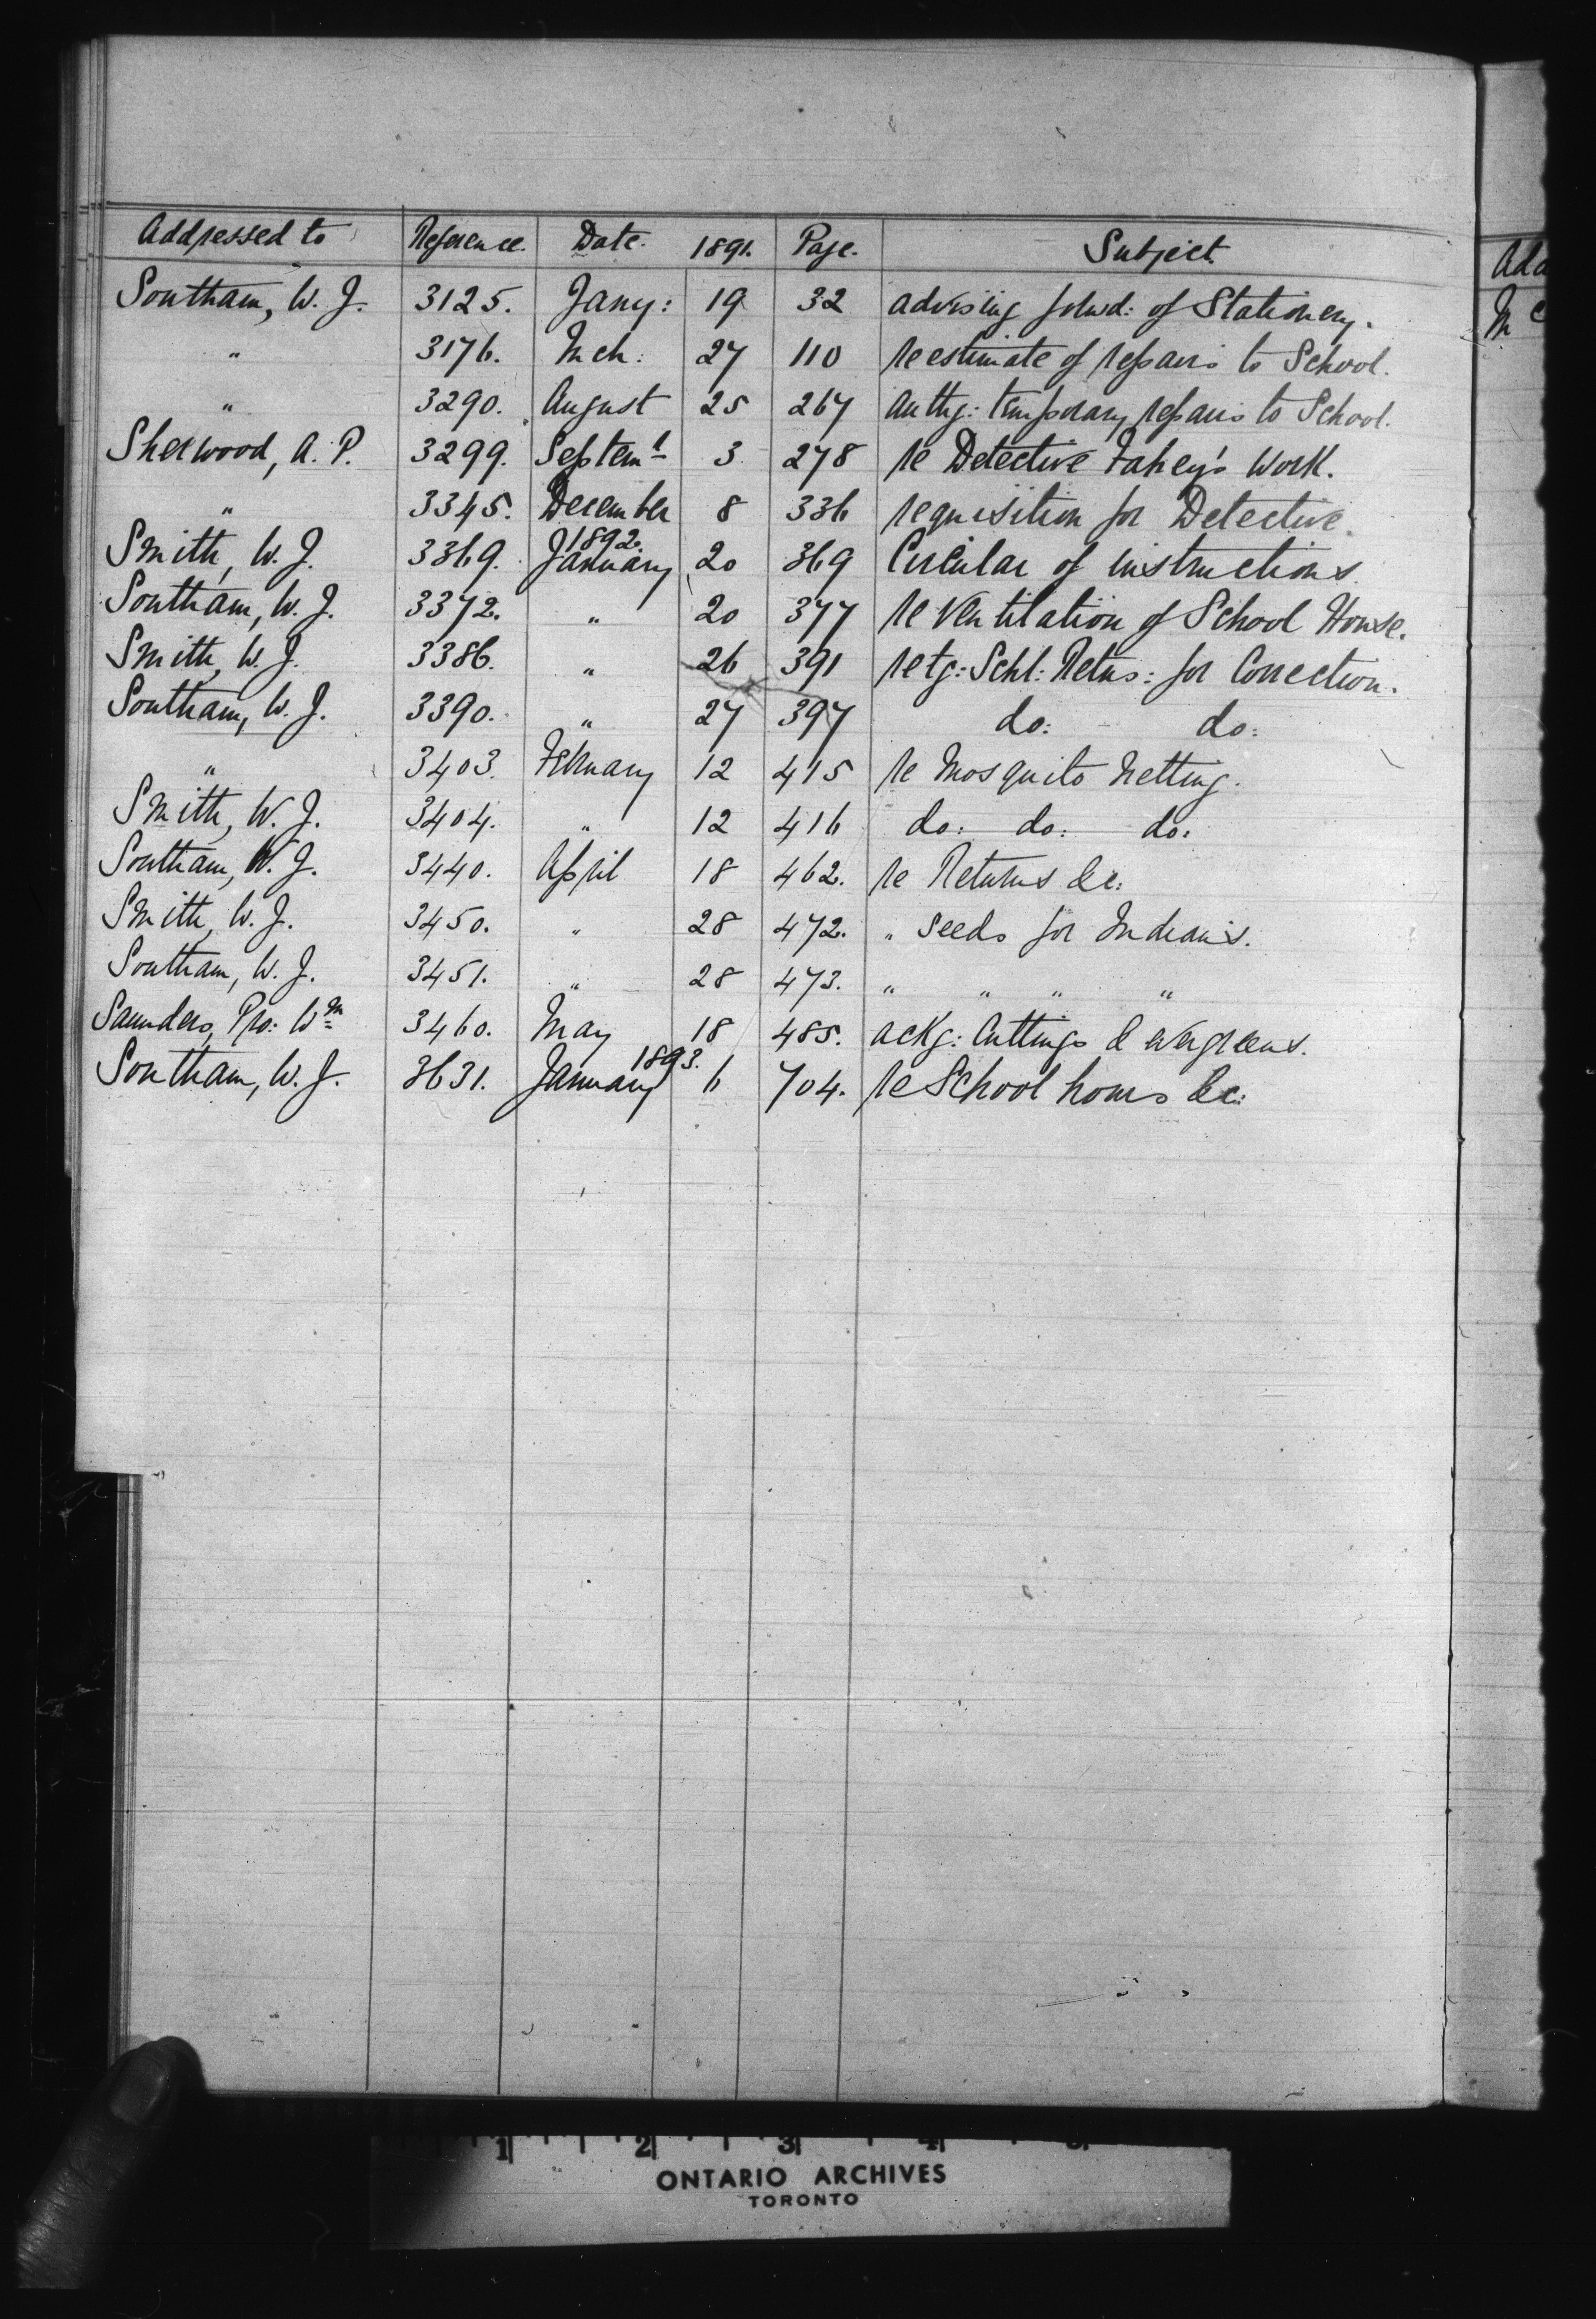 Addressed to Reference. Date. 1891. Page. Subject.
Southam, W. J. 3125. Jany: 19 32 advising forwd: of Stationery.
" 3176. Mch: 27 110 re estimate of repairs to School.
" 3290. August 25 267 Authg: temporary repairs to School.
Sherwood, A. P. 3299. Septemr 3 278 re Detective Fahey's Work.
" 3345. December 8 336 requisition for Detective.
1892.
Smith, W. J. 3369. January 20 369 Circular of instructions
Southam, W. J. 3372. " 20 377 re Ventilation of School House.
Smith, W. J. 3386. " 26 391 retg: Schl: Retns: for Correction.
Southam, W. J. 3390. " 27 397 do: do:
" 3403. February 12 415 re Mosquito Netting.
Smith, W. J. 3404. " 12 416 do: do: do:
Southam, W. J. 3440. April 18 462. re Returns &c:
Smith, W. J. 3450. " 28 472. " Seeds for Indians.
Southam, W. J. 3451. " 28 473. " " " "
Saunders, Pro: Wm 3460. May 18 485. ackg: Cuttings & evergreens.
1893.
Southam, W. J. 3631. January 6 704. re School hours &c:
Add
Mc
1 2 3 4 5
ONTARIO ARCHIVES
TORONTO